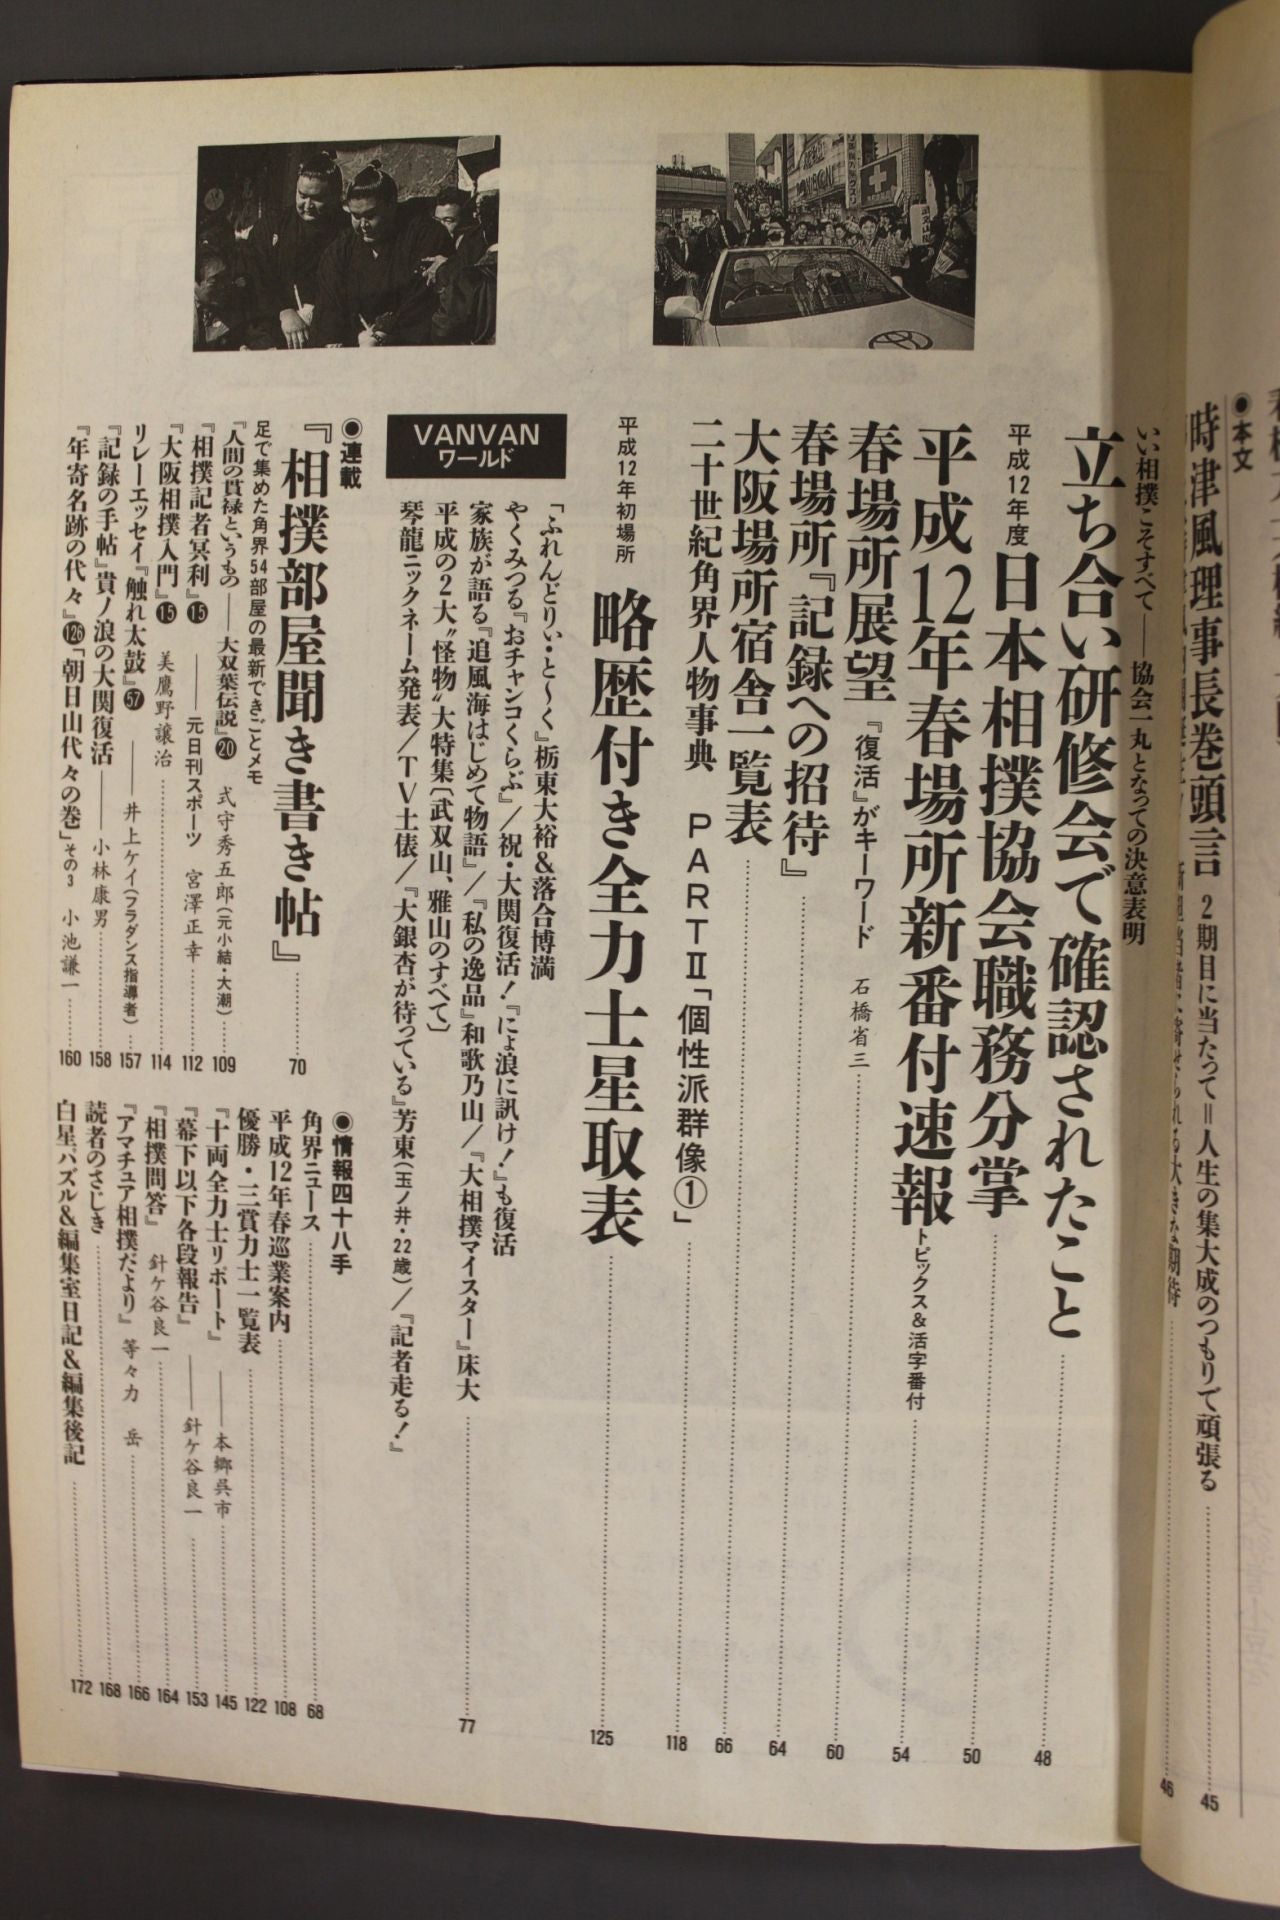 ●本文
時津風理事長巻頭言 2期目に当たって＝人生の集大成のつもりで頑張る 45
46
いい相撲こそすべて――協会一丸となっての決意表明
立ち合い研修会で確認されたこと 48
平成12年度 日本相撲協会職務分掌 50
平成12年春場所新番付速報 トピックス&活字番付 54
春場所展望 『復活』がキーワード 石橋省三 60
春場所『記録への招待』 64
大阪場所宿舎一覧表 66
二十世紀角界人物事典 PARTⅡ「個性派群像①」 118
平成12年初場所 略歴付き全力士星取表 125
VANVAN
ワールド
「ふれんどりぃ・と〜く」栃東大裕&落合博満
やくみつる『おチャンコくらぶ』／祝・大関復活！『にょ浪に訊け！』も復活
家族が語る『追風海はじめて物語』／『私の逸品』和歌乃山／『大相撲マイスター』床大 77
平成の2大〝怪物〟大特集〔武双山、雅山のすべて〕
琴龍ニックネーム発表／TV土俵／『大銀杏が待っている』芳東（玉ノ井・22歳）／『記者走る！』
●連載
『相撲部屋聞き書き帖』 70
足で集めた角界54部屋の最新できごとメモ
『人間の貫禄というもの――大双葉伝説』⑳ 式守秀五郎（元小結・大潮） 109
『相撲記者冥利』⑮ ――元日刊スポーツ 宮澤正幸 112
『大阪相撲入門』⑮ 美鷹野譲治 114
リレーエッセイ『触れ太鼓』57 ――井上ケイ（フラダンス指導者） 157
『記録の手帖』貴ノ浪の大関復活――小林康男 158
『年寄名跡の代々』126「朝日山代々の巻」その3 小池謙一 160
●情報四十八手
角界ニュース 68
平成12年春巡業案内 108
優勝・三賞力士一覧表 122
『十両全力士リポート』 ――本郷呉市 145
『幕下以下各段報告』 ――針ケ谷良一 153
『相撲問答』 針ケ谷良一 164
『アマチュア相撲だより』 等々力 岳 166
読者のさじき 168
白星パズル&編集室日記&編集後記 172